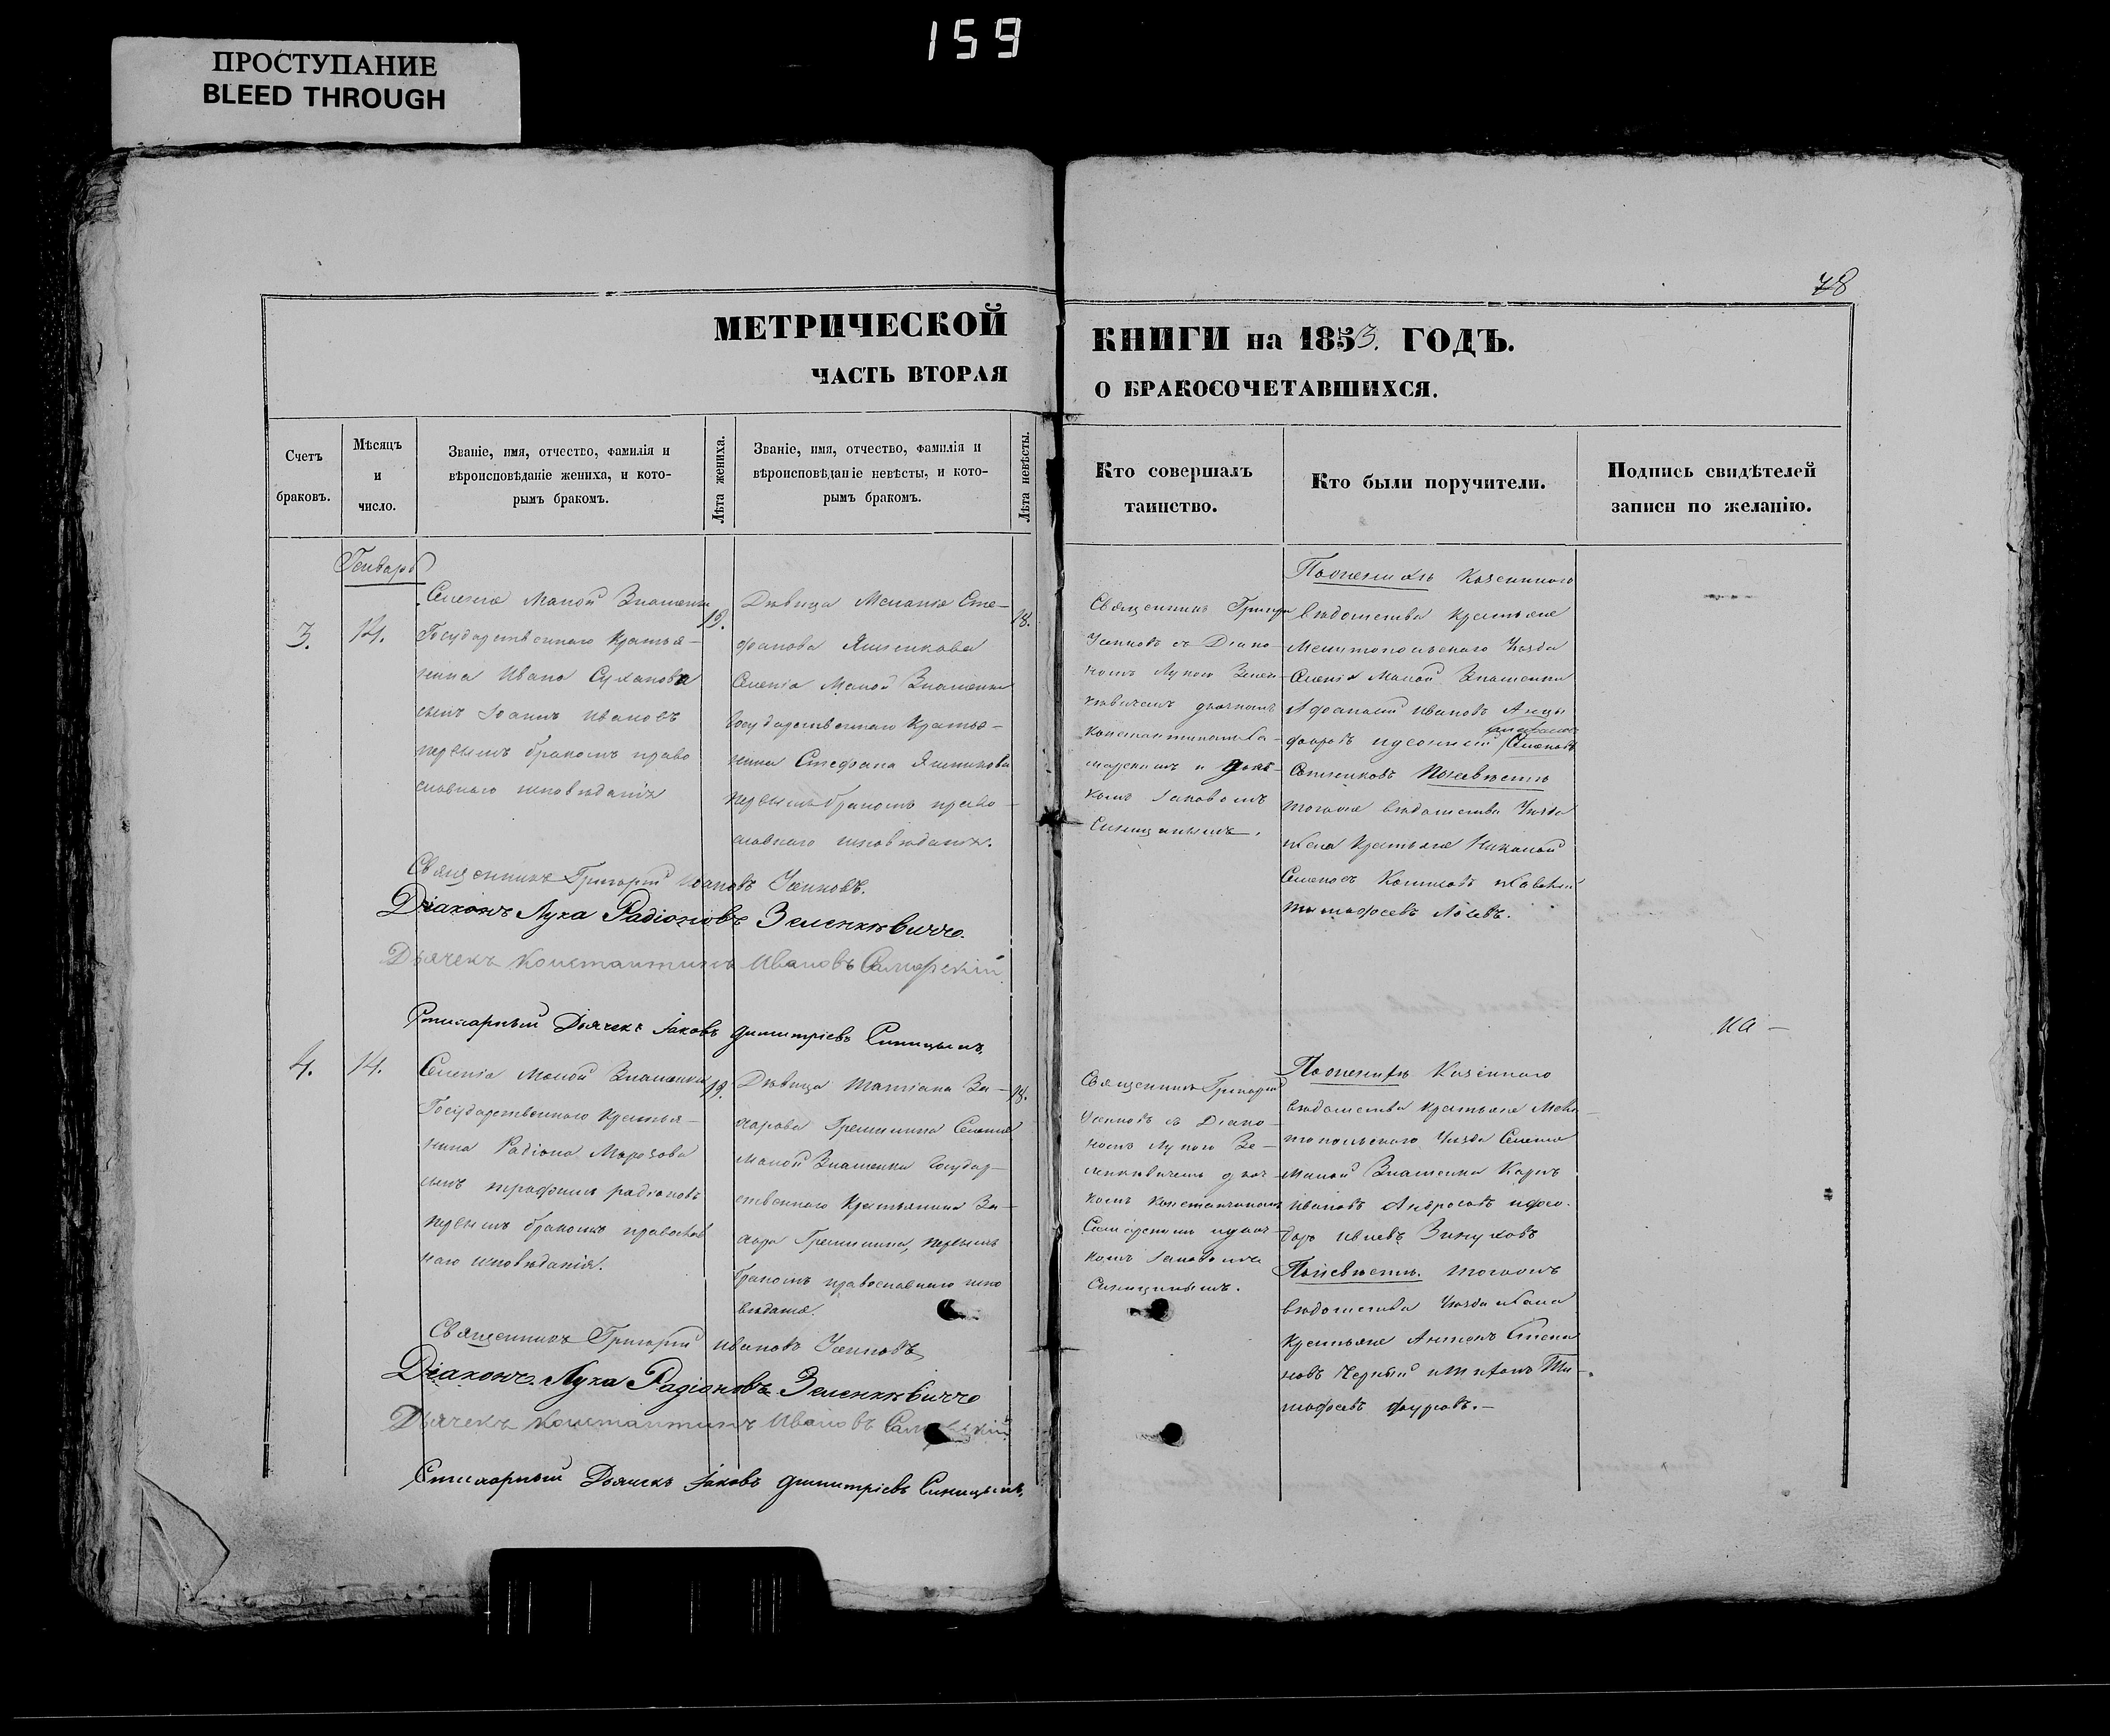 159
ПРОСТУПАНИЕ
BLEED THROUGH
78
МЕТРИЧЕСКОЙ
ЧАСТЬ ВТОРАЯ
КНИГИ на 1853. ГОДЪ.
О БРАКОСОЧЕТАВШИХСЯ.
Счетъ
браковъ.
Мѣсяцъ
и
число.
Званіе, имя, отчество, фамилія и
вѣроисповѣданіе жениха, и кото-
рымъ бракомъ.
Лѣта жениха.
Званіе, имя, отчество, фамилія и
вѣроисповѣданіе невѣсты, и кото-
рымъ бракомъ.
Лѣта невѣсты.
Кто совершалъ
таинство.
Кто были поручители.
Подпись свидѣтелей
записи по желанію.
Генварь
3.
14.
Селенія Малой Знаменки
Государственнаго Крестья-
нина Ивана Суханова
сынъ Іоаннъ Ивановъ
первымъ бракомъ право
славнаго исповѣданія
19.
Дѣвица Меланія Сте-
фанова
Селенія Малой Знаменки
Государственнаго Крестья-
нина Стефана
первымъ бракомъ право-
славнаго исповѣданія.
18.
Священникъ Григорій
съ Діако-
номъ Лукою Зелен-
кѣвичемъ дьячкомъ
Константиномъ Са-
марскимъ и дьяч-
комъ Іаковомъ
Синицынымъ.
По женихѣ Казеннаго
вѣдомства крестьяне
Мелитопольскаго Уѣзда
Селенія Малой Знаменки
Афанасій Ивановъ
По невѣстѣ
тогоже вѣдомства Уѣзда
Крестьяне Николай
Семеновъ
Тимофеевъ
Священникъ Григорій Ивановъ
Діаконъ Лука Радіоновъ Зеленкѣвичъ
Дьячекъ Константинъ Ивановъ Самарскій
Дьячекъ Іаковъ Димитріевъ Синицынъ.
4.
14.
Селенія Малой Знаменки
Государственнаго Крестья-
нина Радіона Марозова
сынъ Трофимъ Радіоновъ
первымъ бракомъ православ
наго исповѣданія.
19.
Дѣвица Татіана За-
харова Гремилина Селенія
Малой Знаменки Государ-
ственнаго Крестьянина За-
хара Гремилина, первымъ
бракомъ православнаго испо
вѣданія.
18.
Священникъ Григорій
съ Діако-
номъ Лукою Зе-
ленкѣвичемъ дьяч
комъ Константиномъ
Самарскимъ и дьяч-
комъ Іаковомъ
Синицынымъ.
По женихѣ Казеннаго
вѣдомства крестьяне Мели-
топольскаго Уѣзда Селенія
Малой Знаменки Карпъ
Ивановъ Андросовъ и Фео-
доръ
По невѣстѣ. тогожъ
вѣдомства Уѣзда
Крестьяне Антонъ Степа
новъ Черный
мофеевъ
Священникъ Григорій Ивановъ
Діаконъ Лука Радіоновъ Зеленкѣвичъ
Дьячекъ Константинъ Ивановъ
Дьячекъ Іаковъ Димитріевъ Синицынъ.